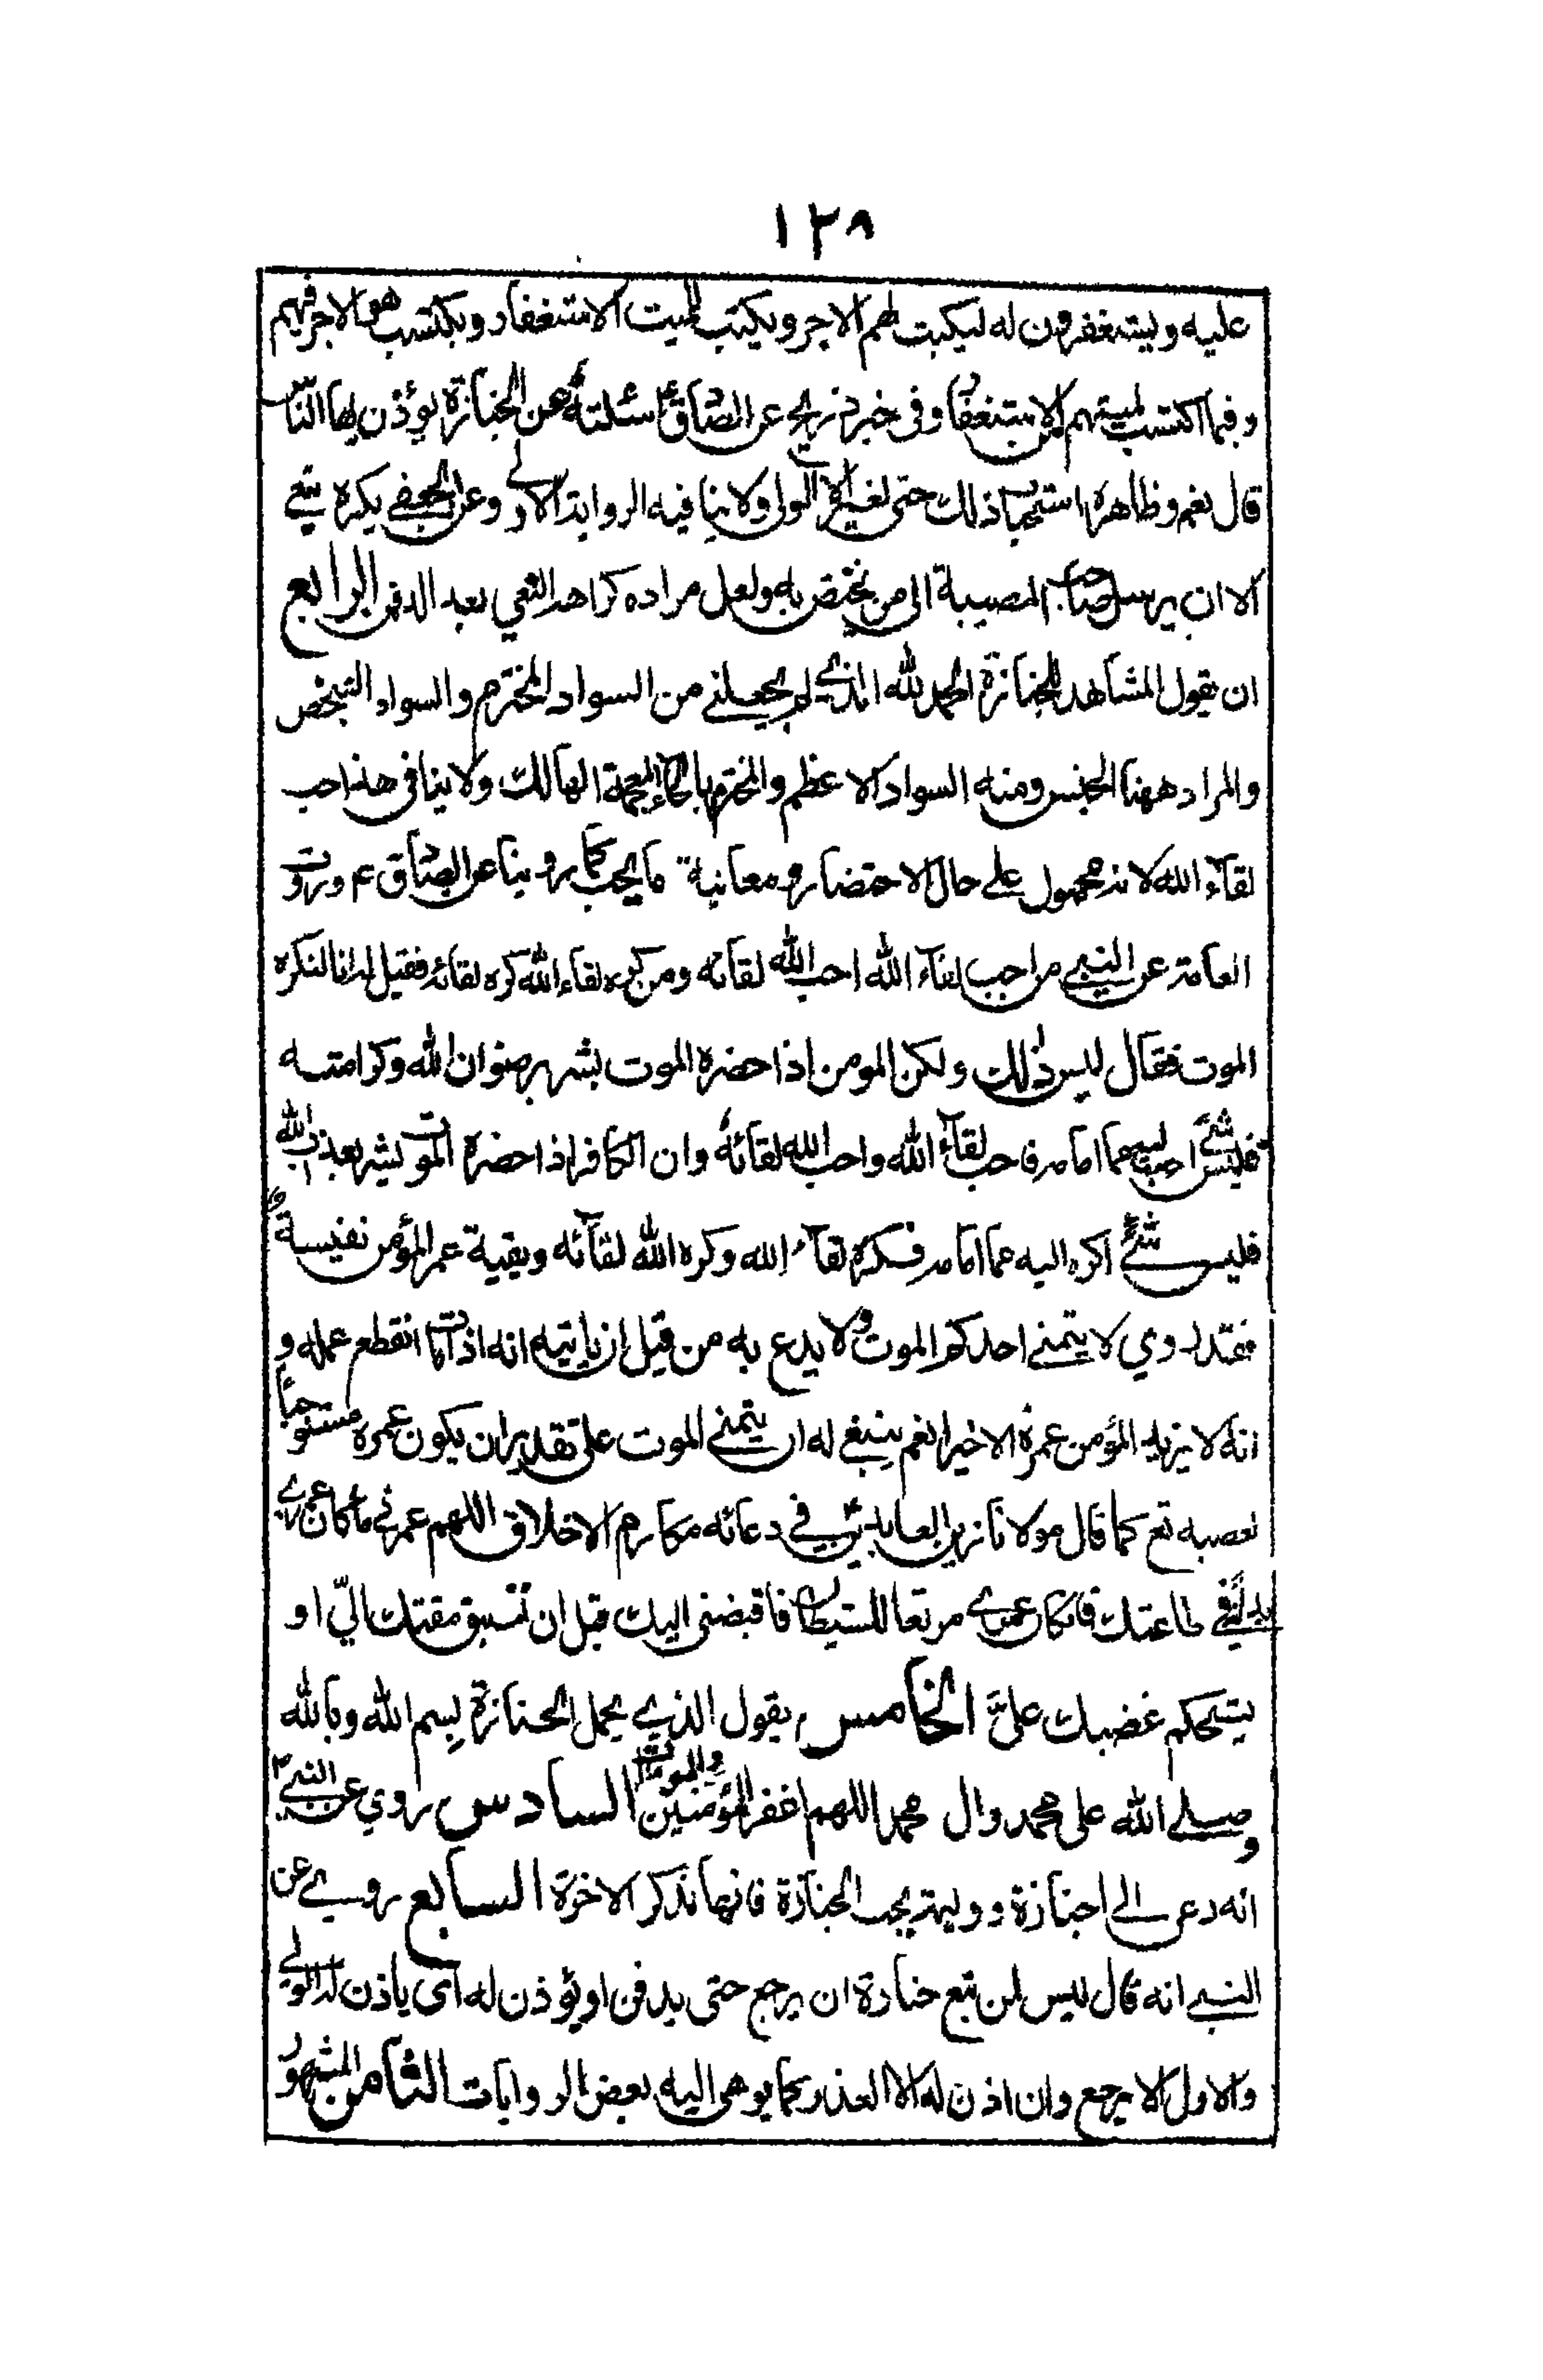 ١٢٨
عليه ويستغفرون له ليكبت لهم الاجر ويكتب للميت الاستغفار ويكتسب هو الاجر فيهم
وفيما اكتسب لميتهم من الاستغفار وفى خبر ذريح عن الصادق ع سئلته عن الجنازة يؤذن بها الناس
قال نعم وظاهره استحباب ذلك حتى لغير الولى ولا ينافيه الرواية الاولى وعن الجعفي يكره
الا ان يرسل صاحب المصيبة الى من يختص به ولعل مراده كراهة النعي بعد الدفن الرابع
ان يقول المشاهد للجنازة الحمد لله الذي لم يجعلني من السواد المخترم والسواد الشخص
والمراد ههنا الجنس ومنه السواد الاعظم والمخترم بالخاء المعجمة الهالك ولا ينافى هذا حب
لقاء الله لانه محمول على حال الاحتضار ومعاينة ما يحب كما روينا عن الصادق ع وروت
العامة عن النبي من احب لقاء الله احب الله لقائه ومن كره لقاء الله كره لقائه فقيل له انا لنكره
الموت فقال ليس ذلك ولكن المومن اذا حضره الموت بشر برضوان الله وكرامته
فليس شئ احب اليه مما امامه فاحب لقاء الله واحب الله لقائه وان الكافر اذا حضرة الموت بشر بعذاب الله
فليس شئ اكره اليه مما امامه فكره لقاء الله وكره الله لقائه وبقية عمر المؤمن نفيسة
فقد روي لا يتمنى احدكم الموت ولا يدع به من قبل ان ياتيه انه اذا مات انقطع عمله و
انه لا يزيد المؤمن عمره الا خيرا نعم ينبغي له ان يتمنى الموت على تقدير ان يكون عمره مستوجبا
لغضبه تع كما قال مولانا زين العابدين ع في دعائه مكارم الاخلاق اللهم عمرني ما كان عمري
بذلة في طاعتك فاذا كان عمري مرتعا للشيطان فاقبضنى اليك قبل ان تسبق مقتك اليّ او
يستحكم غضبك علىّ الخامس يقول الذي يحمل الجنازة بسم الله وبالله
وصلى الله على محمد وال محمد اللهم اغفر للمؤمنين والمومنات السادس روي عن النبي ص
انه دعي الى جنازة ووليمة يجب الجنازة فانها تذكر الاخرة السابع روي عن
النبي انه قال ليس لمن تبع جنازة ان يرجع حتى يدفن او يؤذن له اى ياذن له الولي
والاول الا يرجع وان اذن له الا لعذر كما يومى اليه بعض الروايات الثامن المشهور